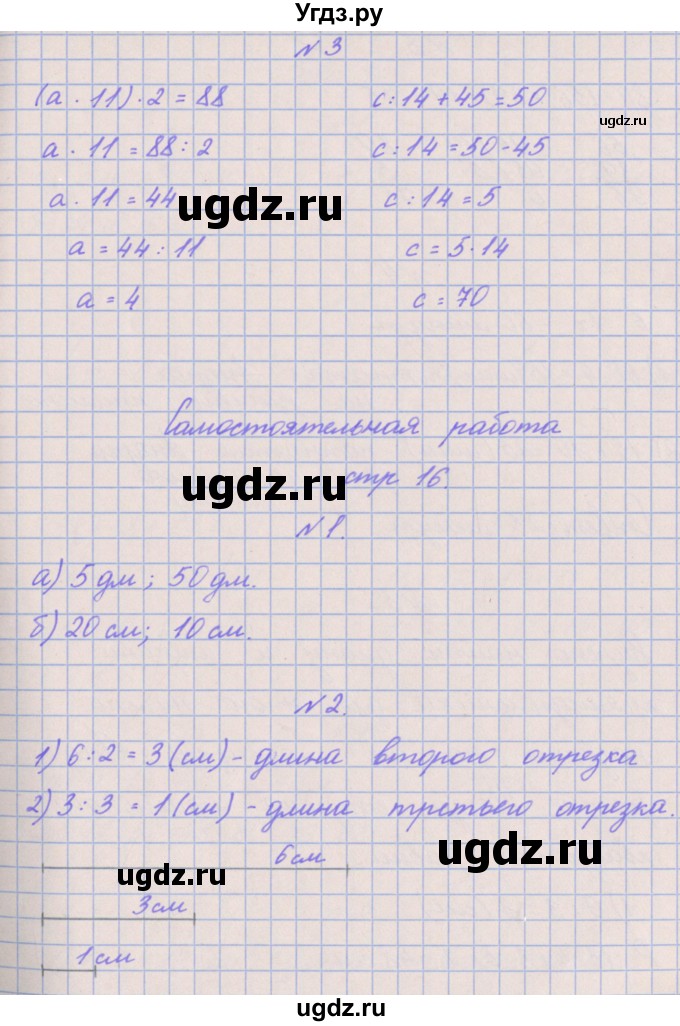 Угдз.ру
N 3
(a · 11) · 2 = 88
a · 11 = 88 : 2
a · 11 = 44
a = 44 : 11
a = 4
c : 14 + 45 = 50
c : 14 = 50 - 45
c : 14 = 5
c = 5 · 14
c = 70
ugdz.ru
ugdz.ru
Самостоятельная работа
стр 16.
ugdz.ru
N 1.
а) 5 дм ; 50 дм.
б) 20 см; 10 см.
N 2.
1) 6 : 2 = 3 (см) - длина второго отрезка
2) 3 : 3 = 1 (см) - длина третьего отрезка.
6 см
ugdz.ru
ugdz.ru
3 см
1 см
ugdz.ru